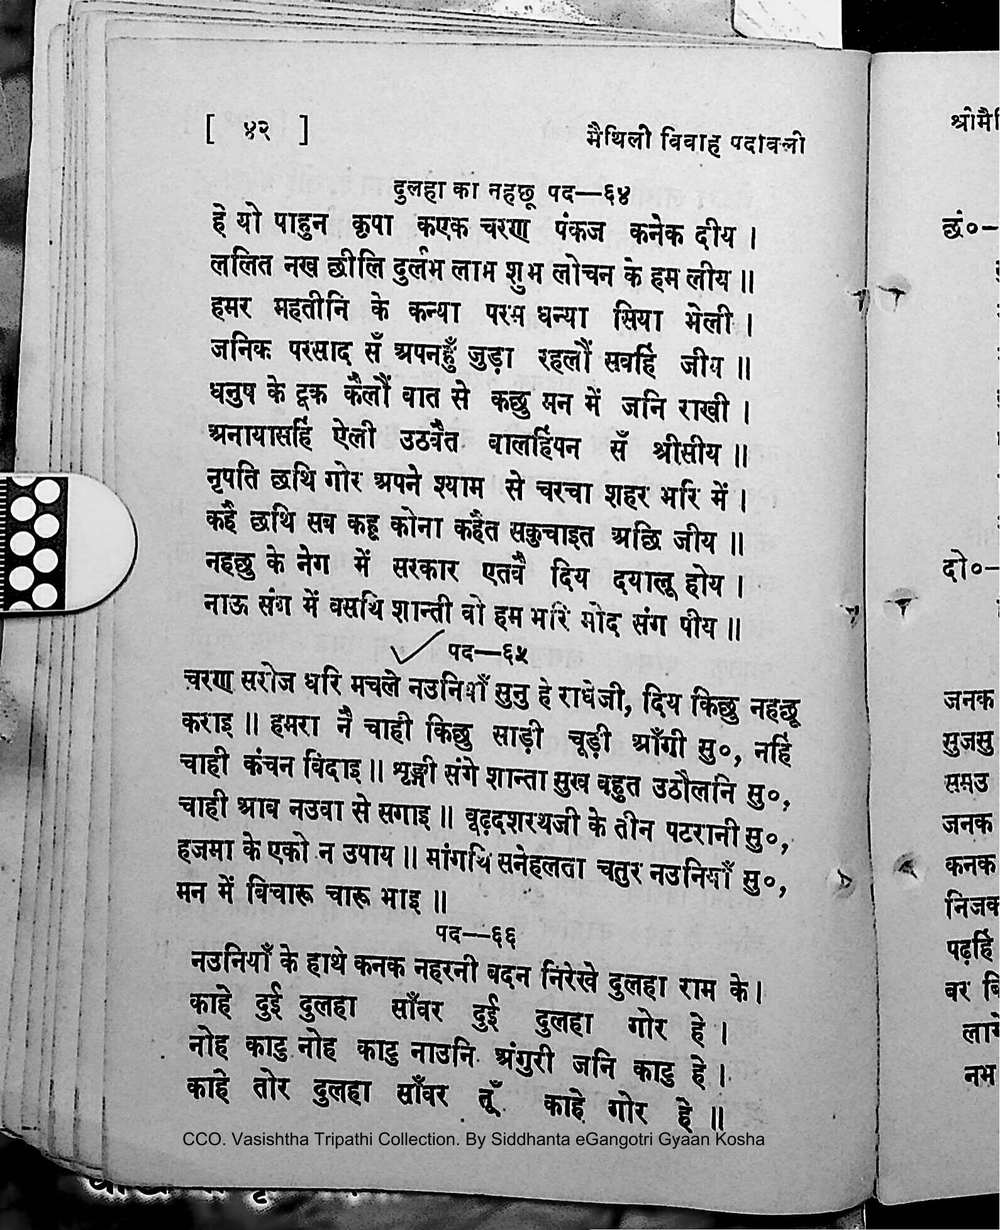 [ ४२ ] मैथिली विवाह पदावली
दुलहा का नहछू पद—६४
हे यो पाहुन कृपा कएक चरण पंकज कनेक दीय ।
ललित नख छीलि दुर्लभ लाभ शुभ लोचन के हम लीय ॥
हमर महतीनि के कन्या परम धन्या सिया भेली ।
जनिक परसाद सँ अपनहुँ जुड़ा रहलौं सवहिं जीय ॥
धनुष के टूक कैलौं वात से कछु मन में जनि राखी ।
अनायासहिं ऐली उठवैत वालहिंपन सँ श्रीसीय ॥
नृपति छथि गोर अपने श्याम से चरचा शहर भरि में ।
कहै छथि सब कहू कोना कहैत सकुचाइत अछि जीय ॥
नहछु के नेग में सरकार एतवै दिय दयालू होय ।
नाऊ संग में वसथि शान्ती वो हम भरि मोद संग पीय ॥
पद—६५
चरण सरोज धरि मचले नउनियाँ सुनु हे राधेजी, दिय किछु नहछू
कराइ ॥ हमरा नै चाही किछु साड़ी चूड़ी आँगी सु०, नहिं
चाही कंचन विदाइ ॥ श्रृङ्गी संगे शान्ता सुख वहुत उठौलनि सु०,
चाही आब नउवा से सगाइ ॥ वूढ़दशरथजी के तीन पटरानी सु०,
हजमा के एको न उपाय ॥ मांगथि सनेहलता चतुर नउनियाँ सु०,
मन में विचारू चारू भाइ ॥
पद—६६
नउनियाँ के हाथे कनक नहरनी वदन निरेखे दुलहा राम के।
काहे दुई दुलहा साँवर दुई दुलहा गोर हे ।
नोह काटु नोह काटु नाउनि अंगुरी जनि काटु हे ।
काहे तोर दुलहा साँवर तूँ काहे गोर हे ॥
CCO. Vasishtha Tripathi Collection. By Siddhanta eGangotri Gyaan Kosha
छं०—
दो०—
जनक
सुजसु
समउ
जनक
कनक
निजक
पढ़हिं
बर
नभ